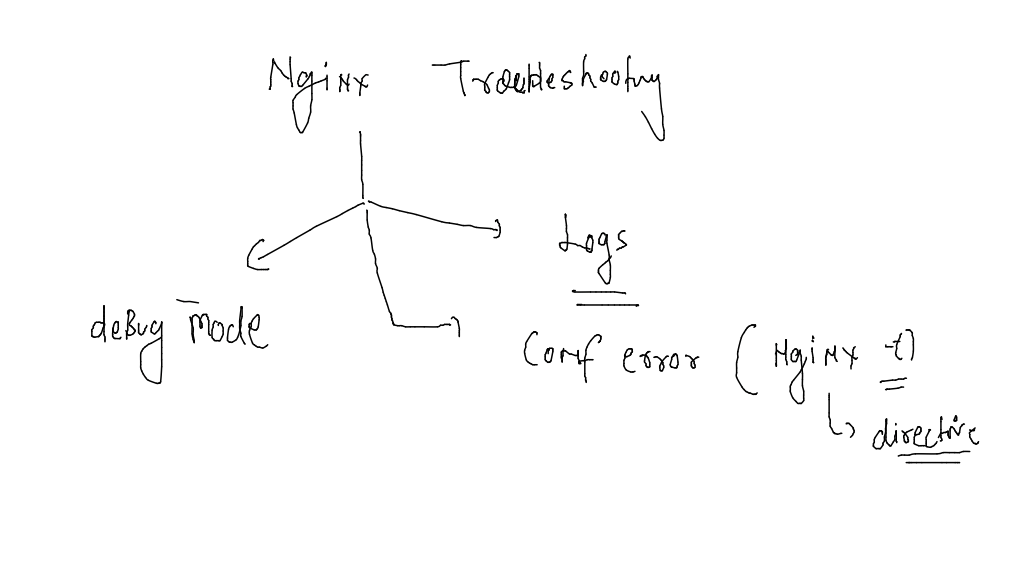 Nginx Troubleshooting
Logs
deBug mode
Conf error (Nginx -t)
directive